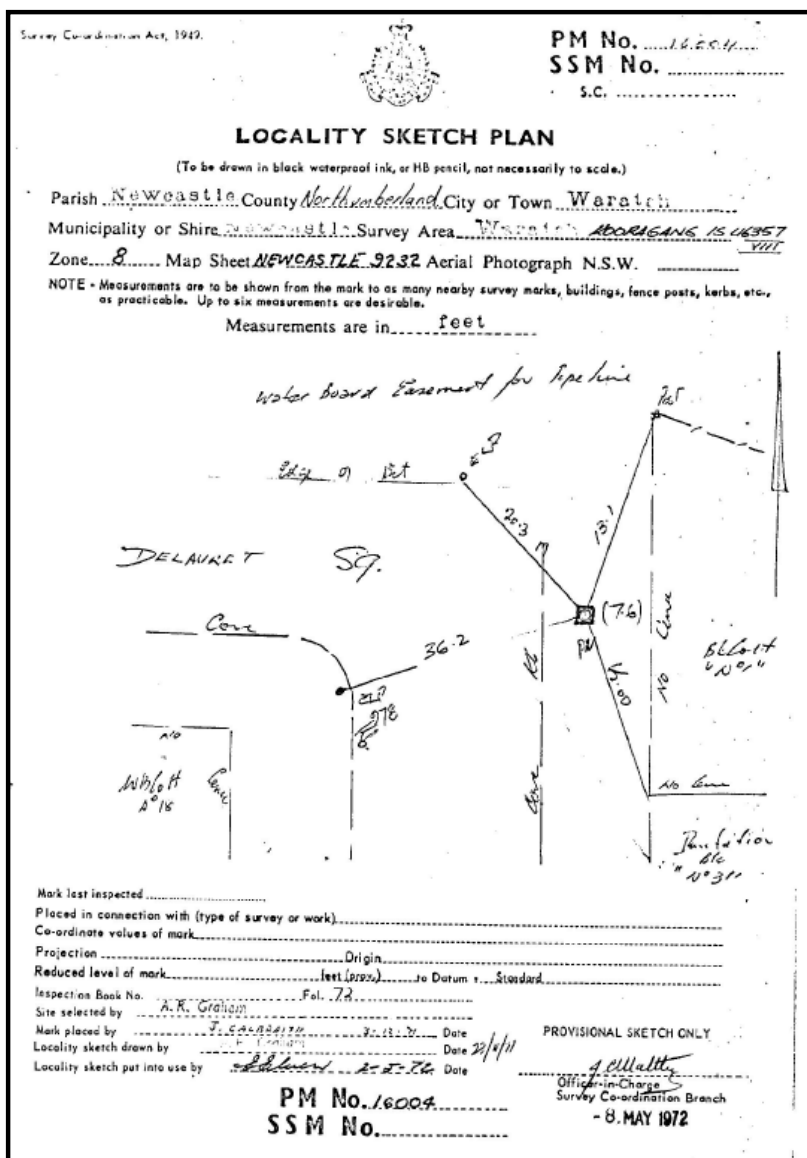 Survey Co-ordination Act, 1949.
PM No. 16004
SSM No.
S.C.
LOCALITY SKETCH PLAN
(To be drawn in black waterproof ink, or HB pencil, not necessarily to scale.)
Parish Newcastle County Northumberland City or Town Waratah
Municipality or Shire Newcastle Survey Area Waratah IS 46357
VIII
Zone 8 Map Sheet NEWCASTLE 9232 Aerial Photograph N.S.W.
NOTE - Measurements are to be shown from the mark to as many nearby survey marks, buildings, fence posts, kerbs, etc., as practicable. Up to six measurements are desirable.
Measurements are in feet
Water Board Easement for Pipeline
Edge of Bit
20.3
13.1
DELAURET Sq.
(7.6)
36.2
No
No
No
Mark last inspected
Placed in connection with (type of survey or work)
Co-ordinate values of mark
Projection Origin
Reduced level of mark feet (prov.) to Datum : Standard
Inspection Book No. Fol. 72
Site selected by A.R. Graham
Mark placed by J. Date
Locality sketch drawn by Date
Locality sketch put into use by Date
PROVISIONAL SKETCH ONLY
Officer-in-Charge
Survey Co-ordination Branch
-8. MAY 1972
PM No. 16004
SSM No.